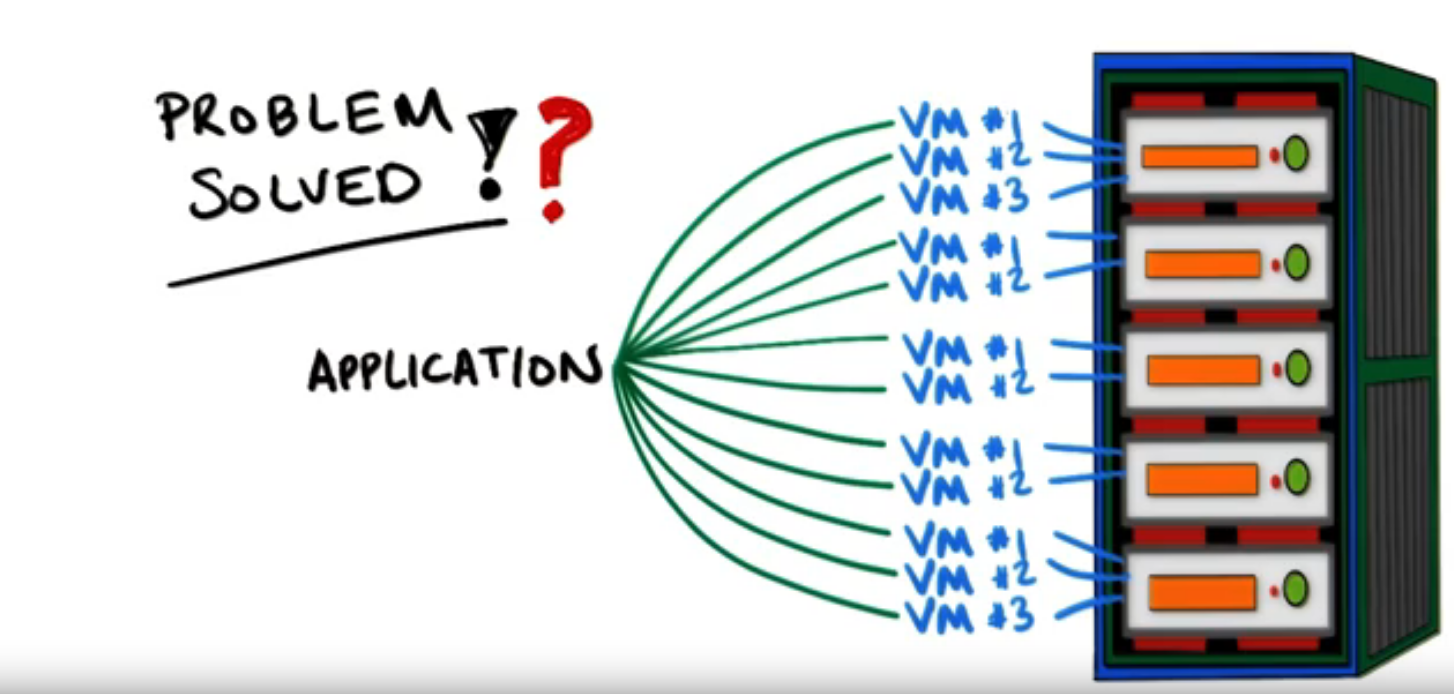 PROBLEM
SOLVED !?
APPLICATION
VM #1
VM #2
VM #3
VM #1
VM #2
VM #1
VM #2
VM #1
VM #2
VM #1
VM #2
VM #3